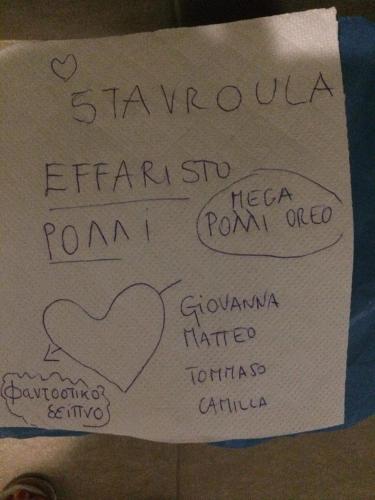 STAVROULA
EFFARISTO
POΛΛI
MEGA
POΛΛI OREO
GIOVANNA
MATTEO
TOMMASO
CAMILLA
φανταστικο
δειπνο